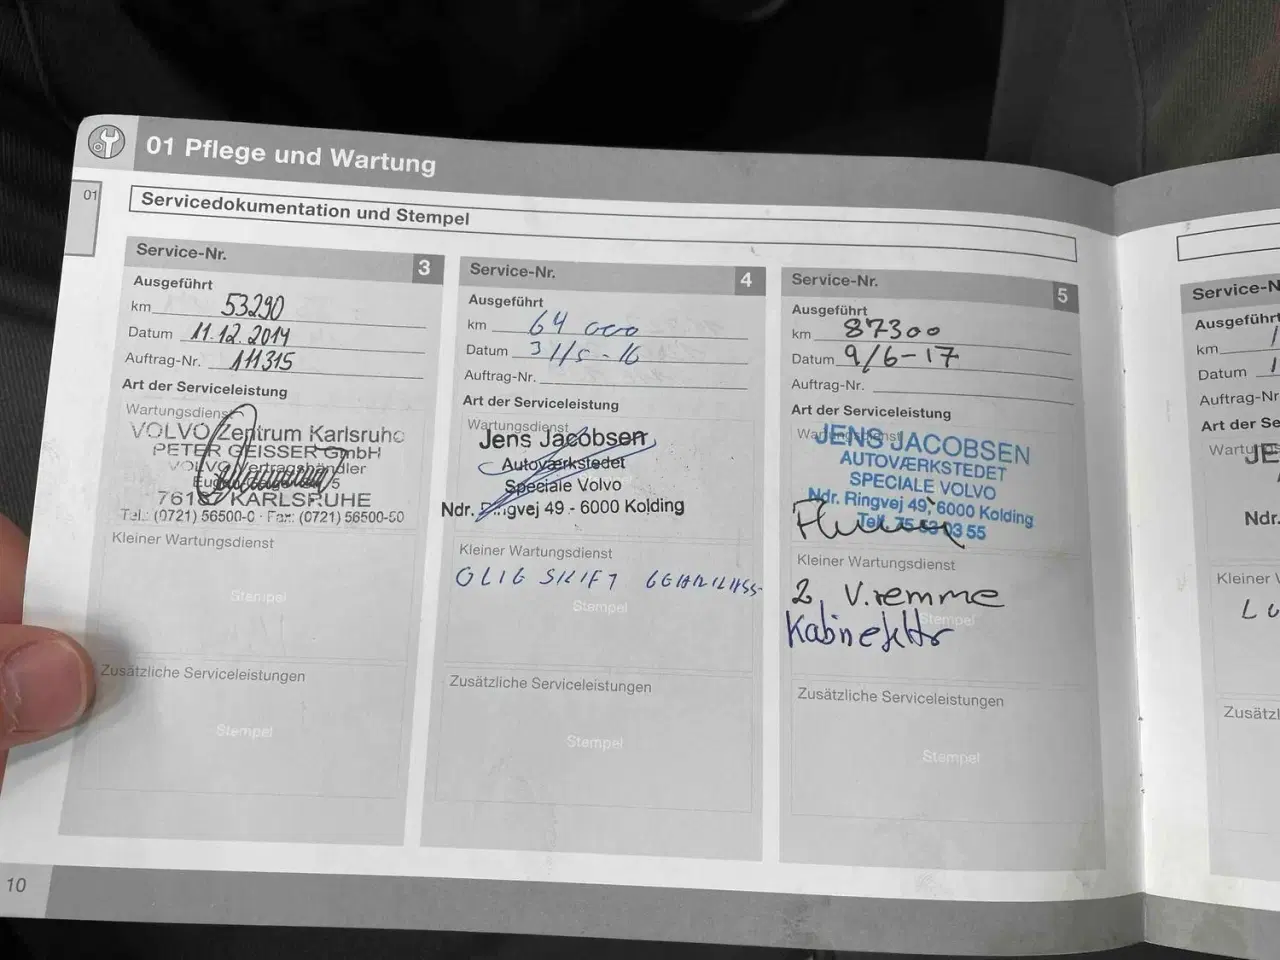 01 Pflege und Wartung
01
Servicedokumentation und Stempel
Service-Nr. 3
Ausgeführt
km 53290
Datum 11.12.2014
Auftrag-Nr. 111315
Art der Serviceleistung
Wartungsdienst
VOLVO Zentrum Karlsruhe
PETER GEISSER GmbH
VOLVO Vertragshändler
5
KARLSRUHE
Tel.: (0721) 56500-0 · Fax: (0721) 56500-50
Kleiner Wartungsdienst
Stempel
Zusätzliche Serviceleistungen
Stempel
Service-Nr. 4
Ausgeführt
km 64 000
Datum 31/5-16
Auftrag-Nr.
Art der Serviceleistung
Wartungsdienst
Jens Jacobsen
Autoværkstedet
Speciale Volvo
Ndr. Ringvej 49 - 6000 Kolding
Kleiner Wartungsdienst
OLIE SKIFT
Stempel
Zusätzliche Serviceleistungen
Stempel
Service-Nr. 5
Ausgeführt
km 87300
Datum 9/6-17
Auftrag-Nr.
Art der Serviceleistung
Wartungsdienst
JENS JACOBSEN
AUTOVÆRKSTEDET
SPECIALE VOLVO
Ndr. Ringvej 49, 6000 Kolding
Telf. 75 53 03 55
Kleiner Wartungsdienst
2 V.remme
Stempel
Kabinefilter
Zusätzliche Serviceleistungen
Stempel
Service-N
Ausgeführt
km 1
Datum 1
Auftrag-Nr
Art der Se
Wartu
JE
Ndr.
Kleiner V
Zusätzl
10